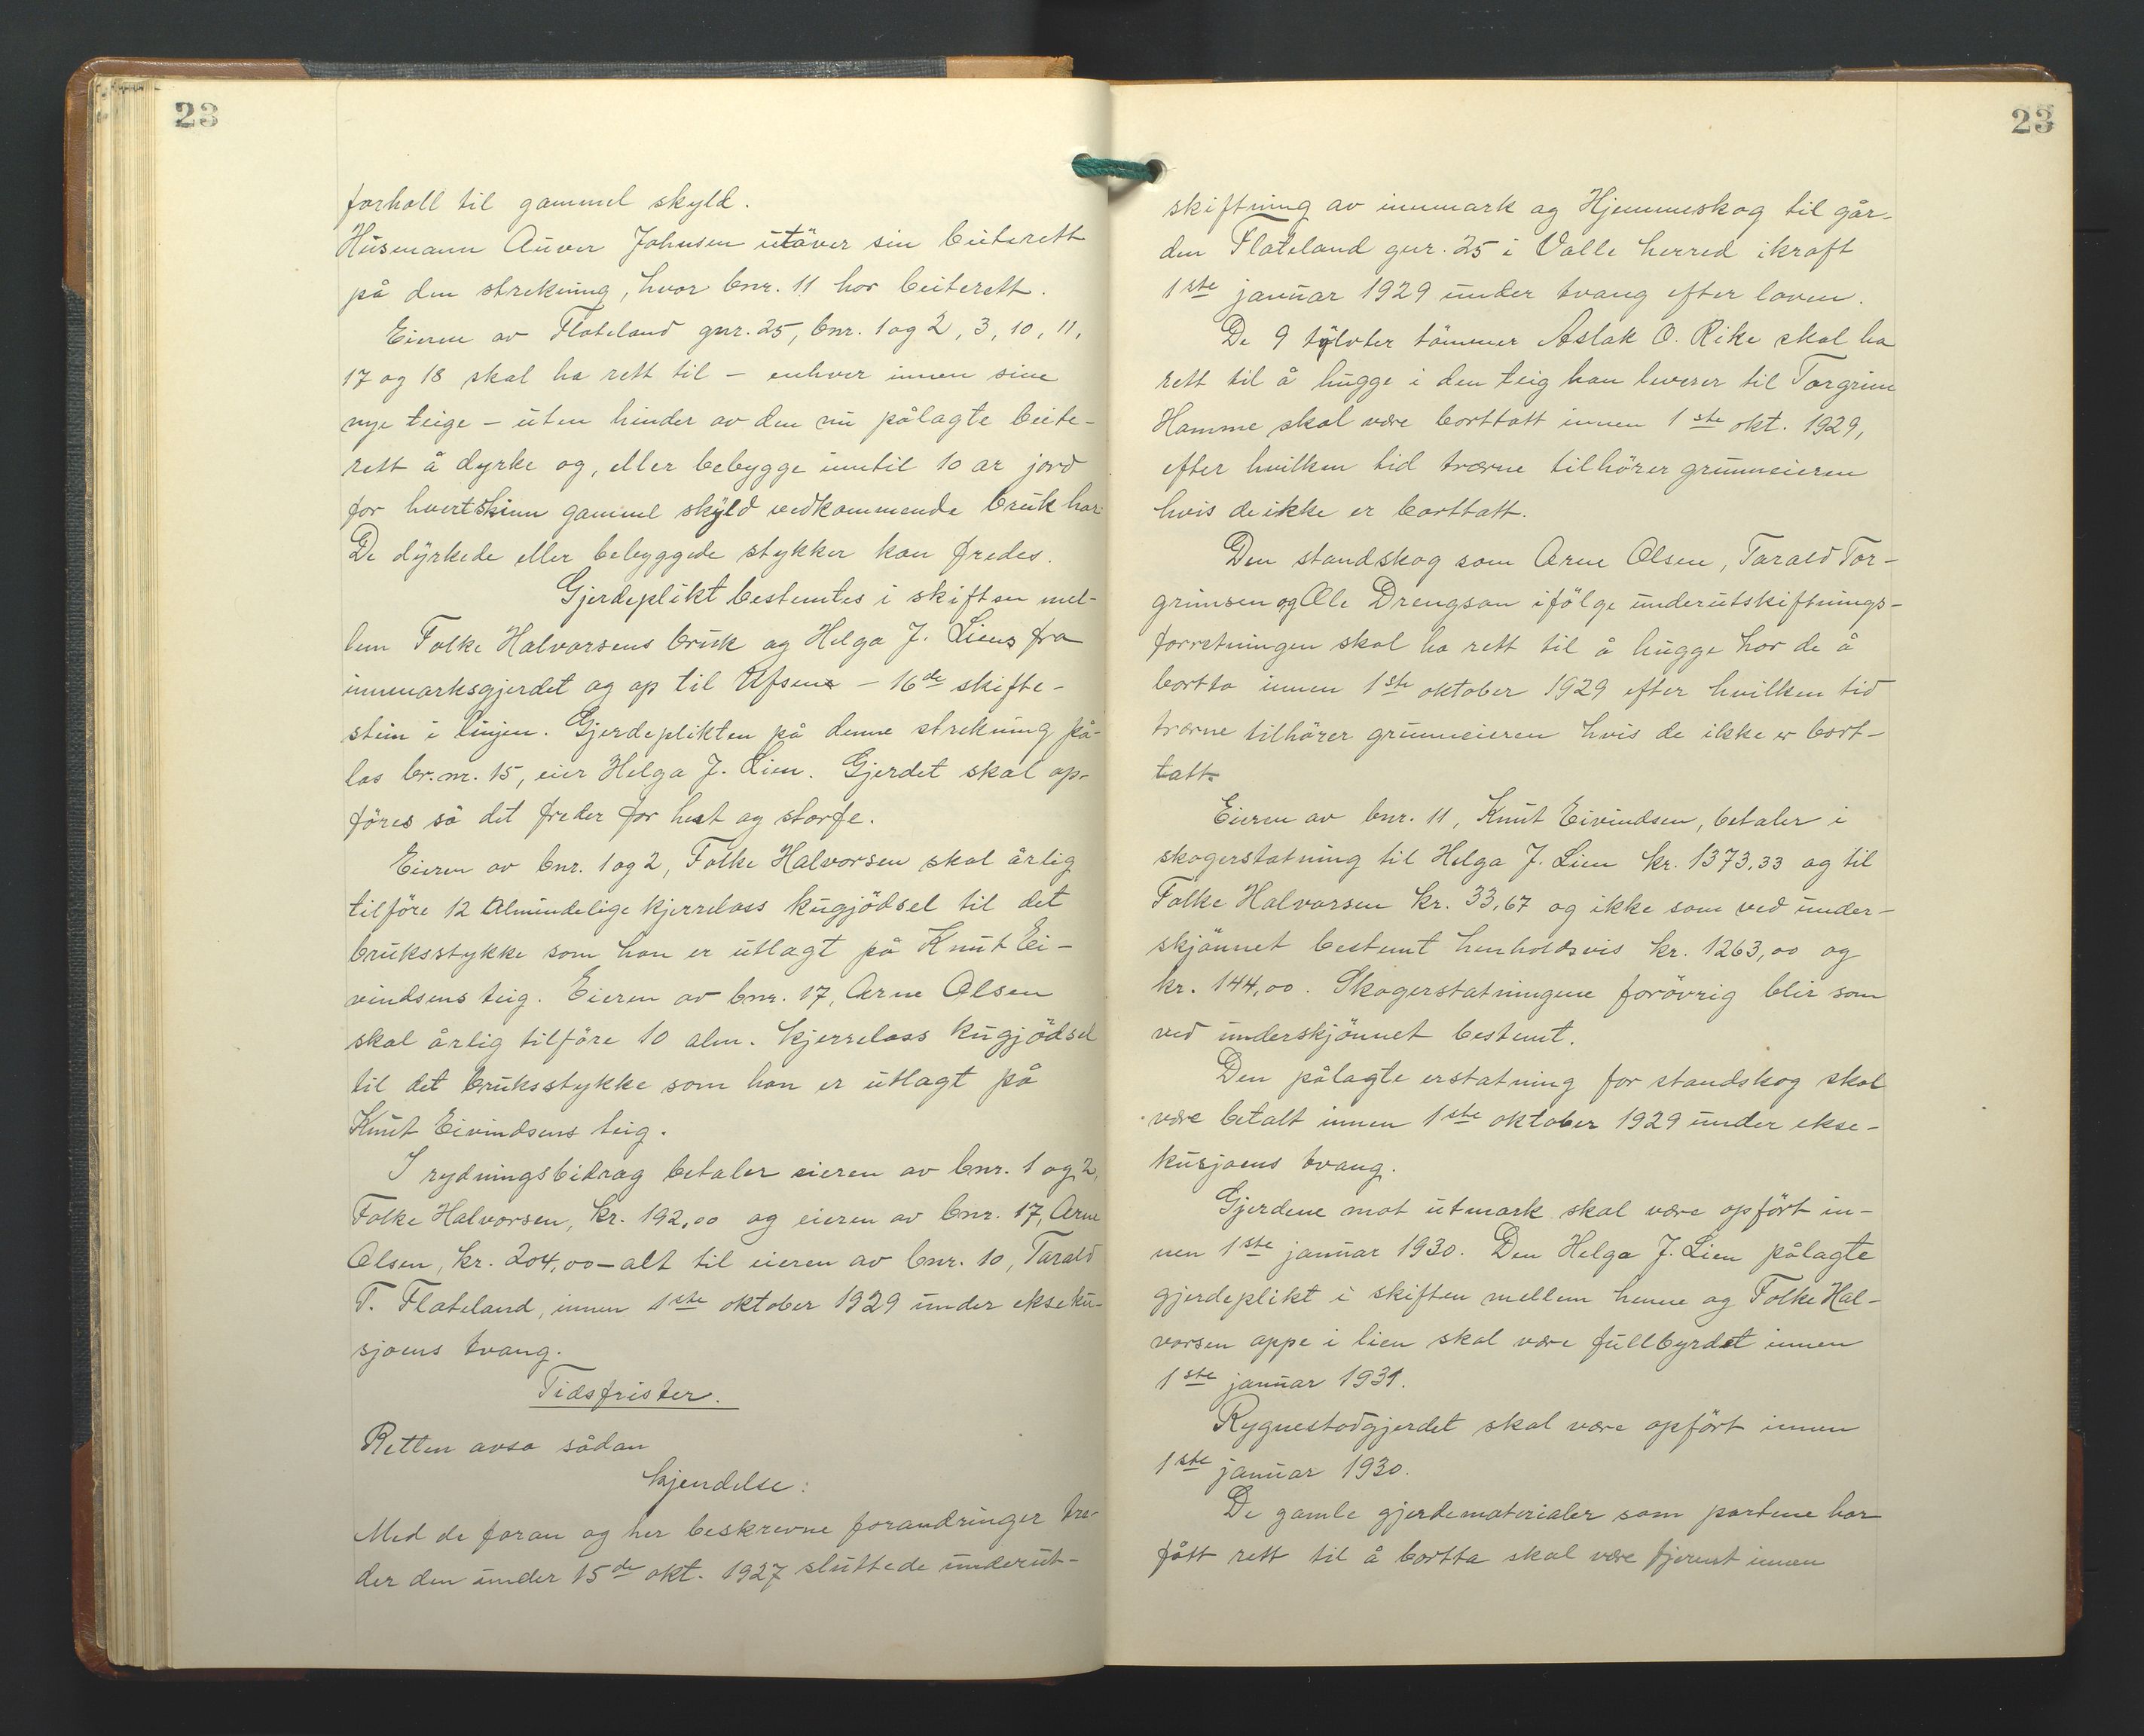 23
forhold til gammel skyld.
Husmann Auver Johnsen utöver sin beiterett
på den strekning, hvor bnr. 11 har beiterett.
Eierne av Flateland gnr. 25, bnr. 1 og 2, 3, 10, 11,
17 og 18 skal ha rett til – enhver innen sine
nye teige – uten hinder av den nu pålagte beite-
rett å dyrke og, eller bebygge inntil 10 ar jord
for hvert skinn gammel skyld vedkommende bruk har.
De dyrkede eller bebyggede stykker kan fredes.
Gjerdeplikt bestemtes i skiftsen mel-
lem Folke Halvorsens bruk og Helga J. Liens fra
innmarksgjerdet og op til Ufsene – 16de skifte-
stein i linjen. Gjerdeplikten på denne strekning på-
las br.nr. 15, eier Helga J. Lien. Gjerdet skal op-
föres så det freder for hest og storfe.
Eieren av bnr. 1 og 2, Folke Halvorsen skal årlig
tilföre 12 almindelige kjerrelass kugjödsel til det
bruksstykke som han er utlagt på Knut Ei-
vindsens teig. Eieren av bnr. 17, Arne Olsen
skal årlig tilföre 10 alm. kjerrelass kugjödsel
til det bruksstykke som han er utlagt på
Knut Eivindsens teig.
I rydningsbidrag betaler eieren av bnr. 1 og 2,
Folke Halvorsen, kr. 192,00 og eieren av bnr. 17, Arne
Olsen, kr. 204,00 – alt til eieren av bnr. 10, Tarald
T. Flateland, innen 1ste oktober 1929 under ekseku-
sjoens tvang.
Tidsfrister.
Retten avsa sådan
kjendelse:
Med de foran og her beskrevne forandringer tre-
der den under 15de okt. 1927 sluttede underut-
23
skiftning av innmark og Hjemmeskog til går-
den Flateland gnr. 25 i Valle herred ikraft
1ste januar 1929 under tvang efter loven.
De 9 tylvter tömmer Aslak O. Rike skal ha
rett til å hugge i den teig han leverer til Torgrim
Hamme skal være borttatt innen 1ste okt. 1929,
efter hvilken tid trærne tilhörer grunneieren
hvis de ikke er borttatt.
Den standskog som Arne Olsen, Tarald Tor-
grimsen og Ole Drengson ifölge underutskiftnings-
forretningen skal ha rett til å hugge har de å
bortta innen 1ste oktober 1929 efter hvilken tid
trærne tilhörer grunneieren hvis de ikke er bort-
tatt.
Eieren av bnr. 11, Knut Eivindsen, betaler i
skogerstatning til Helga J. Lien kr. 1373,33 og til
Folke Halvorsen kr. 33,67 og ikke som ved under-
skjönnet bestemt henholdsvis kr. 1263,00 og
kr. 144,00. Skogerstatningene forövrig blir som
ved underskjönnet bestemt.
Den pålagte erstatning for standskog skal
være betalt innen 1ste oktober 1929 under ekse-
kusjoens tvang.
Gjerdene mot utmark skal være opfört in-
nen 1ste januar 1930. Den Helga J. Lien pålagte
gjerdeplikt i skiften mellem henne og Folke Hal-
vorsen oppe i lien skal være fullbyrdet innen
1ste januar 1931.
Rygnestadgjerdet skal være opfört innen
1ste januar 1930.
De gamle gjerdematerialer som partene har
fått rett til å bortta skal være fjernet innen